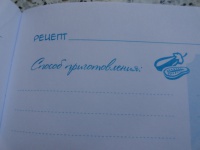 РЕЦЕПТ
Способ приготовления: